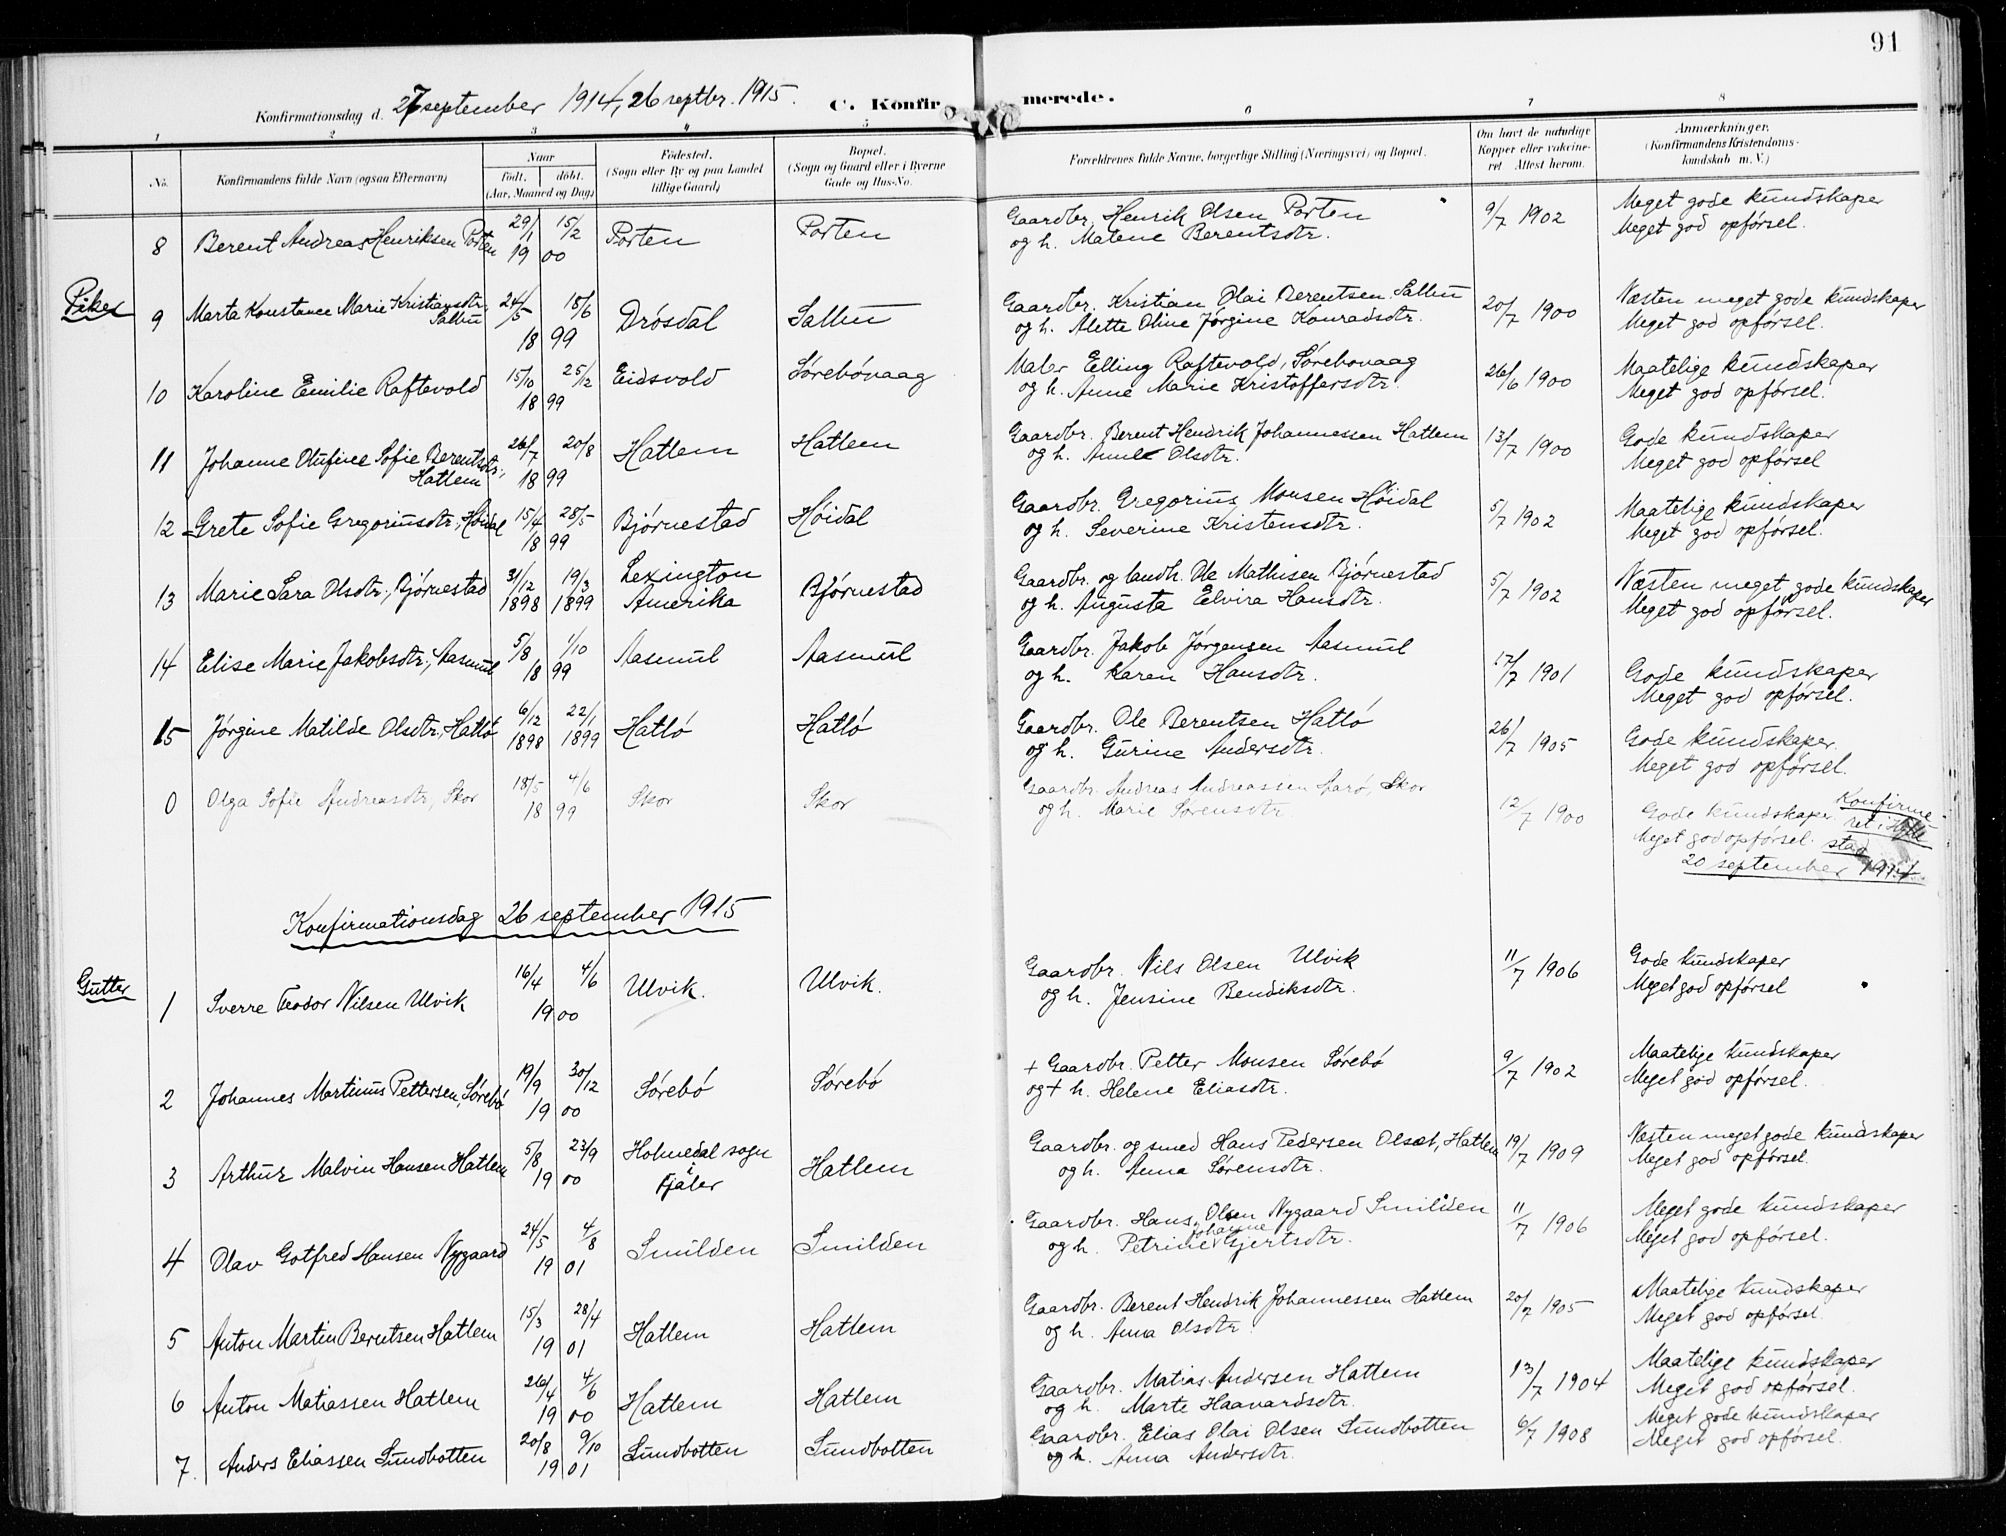 91
Konfirmationsdag d. 27 september 1914, 26 septbr. 1915. C. Konfirmerede.
1 2 3 4 5 6 7 8
No.
Konfirmandens fulde Navn (ogsaa Efternavn)
Naar
født. døbt.
(Aar, Maaned og Dag)
Fødested.
(Sogn eller By og paa Landet
tillige Gaard)
Bopæl.
(Sogn og Gaard eller i Byerne
Gade og Hus-No.
Forældrenes fulde Navne, borgerlige Stilling (Næringsvei) og Bopæl.
Om havt de naturlige
Kopper eller vakcine-
ret Attest herom.
Anmærkninger.
(Konfirmandens Kristendoms-
kundskab m. V.)
8 Berent Andreas Henriksen Porten 29/1 15/2 1900 Porten Porten Gaardbr. Henrik Olsen Porten 9/7 1902 Meget gode kundskaper
og h. Malene Berentsdtr. Meget god opførsel.
Piker
9 Marta Konstance Marie Kristiansdtr. 24/5 18/6 1899 Drøsdal Salbu Gaardbr. Kristian Olai Berentsen Salbu 20/7 1900 Næsten meget gode kundskaper
Salbu og h. Alette Oline Jørgine Konradsdtr. Meget god opførsel.
10 Karoline Emilie Raftevold 15/10 25/2 1899 Eidsvold Sørebøvaag Maler Elling Raftevold, Sørebovaag 26/6 1900 Maatelige kundskaper
og h. Anne Marie Kristoffersdtr. Meget god opførsel.
11 Johanne Olufine Sofie Berentsdtr., 26/7 20/8 1899 Hatlem Hatlem Gaardbr. Berent Hendrik Johannessen Hatlem 13/7 1900 Gode kundskaper
Hatlem og h. Anne Olsdtr. Meget god opførsel
12 Grete Sofie Gregoriusdtr., Høidal 15/4 28/5 1899 Bjørnestad Høidal Gaardbr. Gregorius Monsen Høidal 5/7 1902 Maatelige kundskaper
og h. Severine Kristensdtr. Meget god opførsel.
13 Marie Sara Olsdtr., Bjørnestad 31/12 1898 19/3 1899 Lexington Amerika Bjørnestad Gaardbr. og landh. Ole Mathisen Bjørnestad 5/7 1902 Næsten meget gode kundskaper
og h. Augusta Elvira Hansdtr. Meget god opførsel.
14 Elise Marie Jakobsdtr., Aasmul 5/8 1/10 1899 Aasmul Aasmul Gaardbr. Jakob Jørgensen Aasmul 17/7 1901 Gode kundskaper
og h. Karen Hansdtr. Meget god opførsel.
15 Jørgine Matilde Olsdtr., Hatlø 6/12 1898 22/1 1899 Hatlø Hatlø Gaardbr. Ole Berentsen Hatlø 26/7 1905 Gode kundskaper.
og h. Gurine Andersdtr. Meget god opførsel.
0 Olga Sofie Andreasdtr, Skor 18/5 4/6 1899 Skor Skor Gaardbr. Andreas Andreassen Aarø, Skor 12/7 1900 Gode kundskaper. Konfirme-
og h. Marie Sørensdtr. Meget god opførsel. ret i Hylle
stad
20 september 1914.
Konfirmationsdag 26 september 1915
Gutter
1 Sverre Teodor Nilsen Ulvik 16/4 4/6 1900 Ulvik. Ulvik. Gaardbr. Nils Olsen Ulvik 11/7 1906 Gode kundskaper
og h. Jensine Bendiksdtr. Meget god opførsel
2 Johannes Martinus Pettersen, Sørebø 19/9 30/12 1900 Sørebø Sørebø + Gaardbr. Petter Monsen Sørebø 9/7 1902 Maatelige kundskaper
og + h. Helene Eliasdtr. Meget god opførsel.
3 Arthur Malvin Hansen Hatlem 5/8 23/9 1900 Holmedal sogn i Fjaler Hatlem Gaardbr. og smed Hans Pedersen Olset, Hatlem 19/7 1909 Næsten meget gode kundskaper
og h. Anna Sørensdtr. Meget god opførsel.
4 Olav Gotfred Hansen Nygaard 24/5 4/8 1901 Smilden Smilden Gaardbr. Hans Olsen Nygaard Smilden 11/7 1906 Meget gode kundskaper
og h. Petrine Johanne Gjertsdtr. Meget god opførsel.
5 Anton Martin Berentsen Hatlem 15/3 28/4 1901 Hatlem Hatlem Gaardbr. Berent Hendrik Johannessen Hatlem 20/7 1905 Maatelige kundskaper
og h. Anna Olsdtr. Meget god opførsel.
6 Anton Matiassen Hatlem 26/4 4/6 1900 Hatlem Hatlem Gaardbr. Matias Andersen Hatlem 13/7 1904 Maatelige kundskaper
og h. Marte Haavardsdtr. Meget god opførsel.
7. Anders Eliassen Sundbotten 20/8 9/10 1901 Sundbotten Sundbotten Gaardbr. Elias Olai Olsen Sundbotten 6/7 1908 Meget gode kundskaper
og h. Anna Andersdtr. Meget god opførsel.